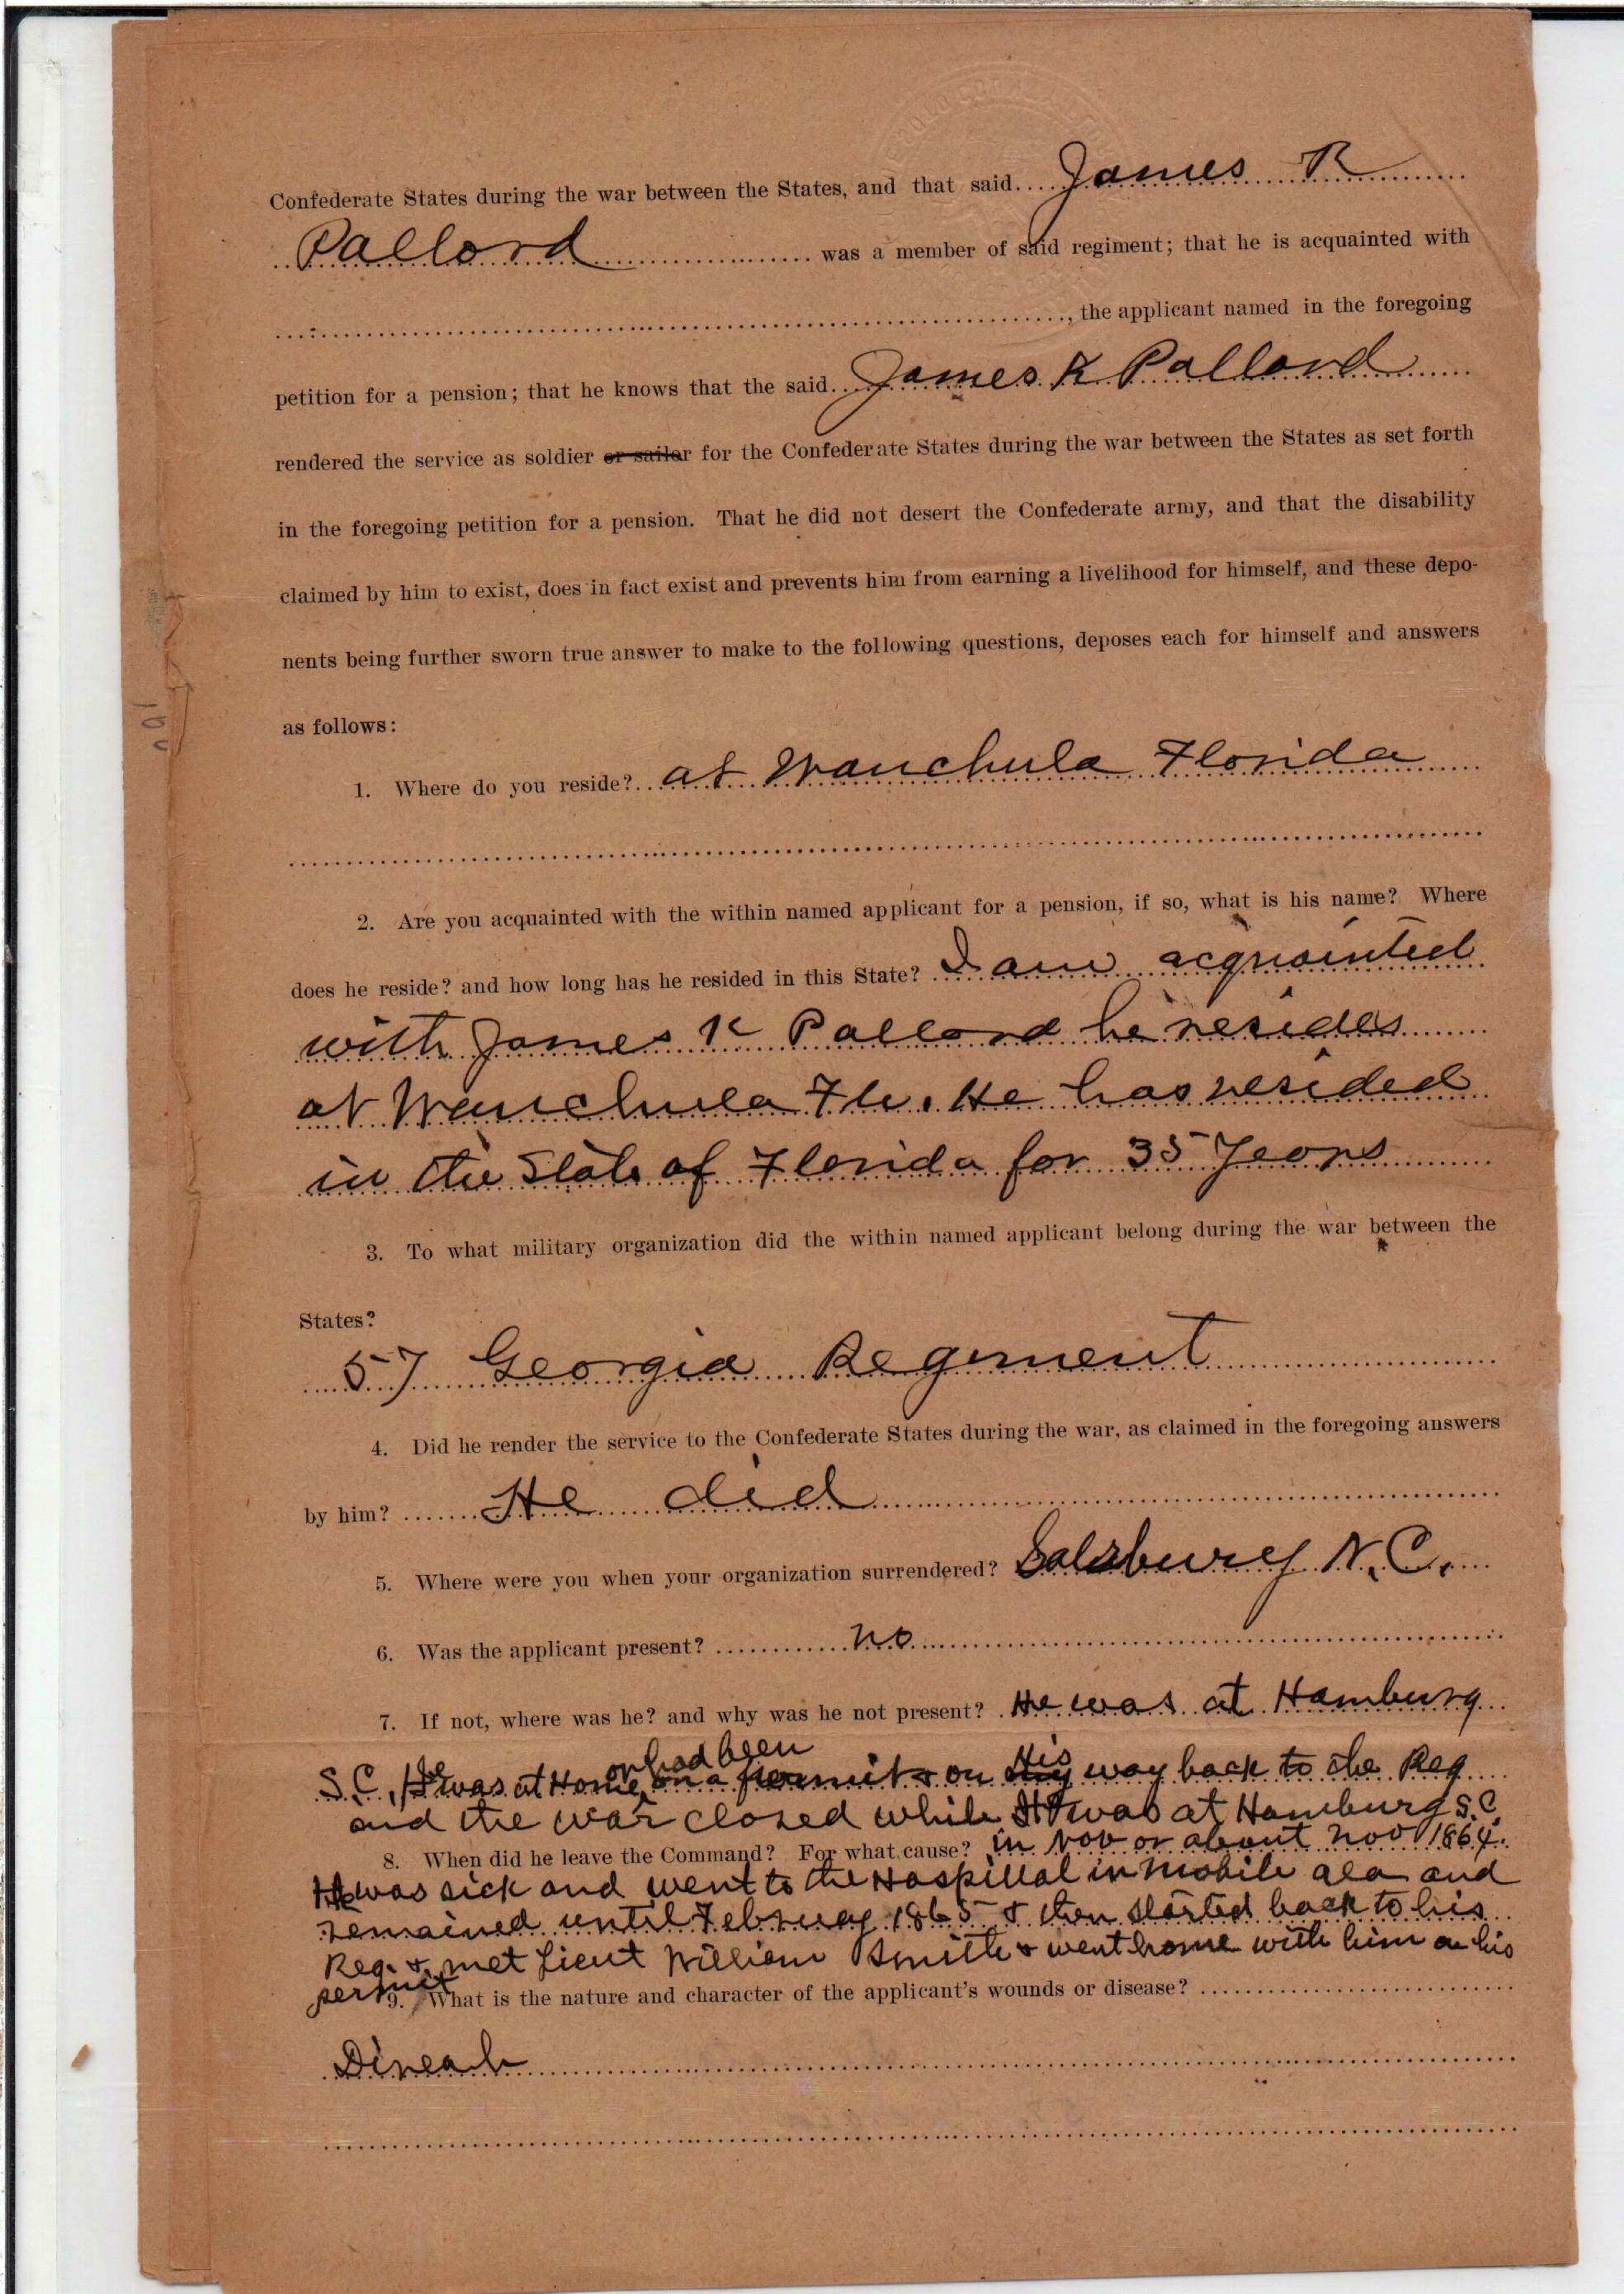 Confederate States during the war between the States, and that said....James R
Pallord was a member of said regiment; that he is acquainted with
, the applicant named in the foregoing
petition for a pension; that he knows that the said..James K Pallord
rendered the service as soldier or sailor for the Confederate States during the war between the States as set forth
in the foregoing petition for a pension. That he did not desert the Confederate army, and that the disability
claimed by him to exist, does in fact exist and prevents him from earning a livelihood for himself, and these depo-
nents being further sworn true answer to make to the following questions, deposes each for himself and answers
as follows:
1. Where do you reside? at Wauchula Florida
2. Are you acquainted with the within named applicant for a pension, if so, what is his name? Where
does he reside? and how long has he resided in this State? I am acquainted
with James K Pallord he resides
at Wauchula Fla. He has resided
in the State of Florida for 35 Years
3. To what military organization did the within named applicant belong during the war between the
States?
57 Georgia Regiment
4. Did he render the service to the Confederate States during the war, as claimed in the foregoing answers
by him? He did
5. Where were you when your organization surrendered? Salsbury N.C.
6. Was the applicant present? no
7. If not, where was he? and why was he not present? He was at Hamburg
or had been
S.C., He was at Home on a permit & on His way back to the Reg
and the war closed while He was at Hamburg S.C.
8. When did he leave the Command? For what cause? in Nov or about Nov 1864.
He was sick and went to the Haspital in Mobile Ala and
remained until February 1865 & then started back to his
Reg. & met Lieut William Smith & went home with him on his
permit
9. What is the nature and character of the applicant's wounds or disease?